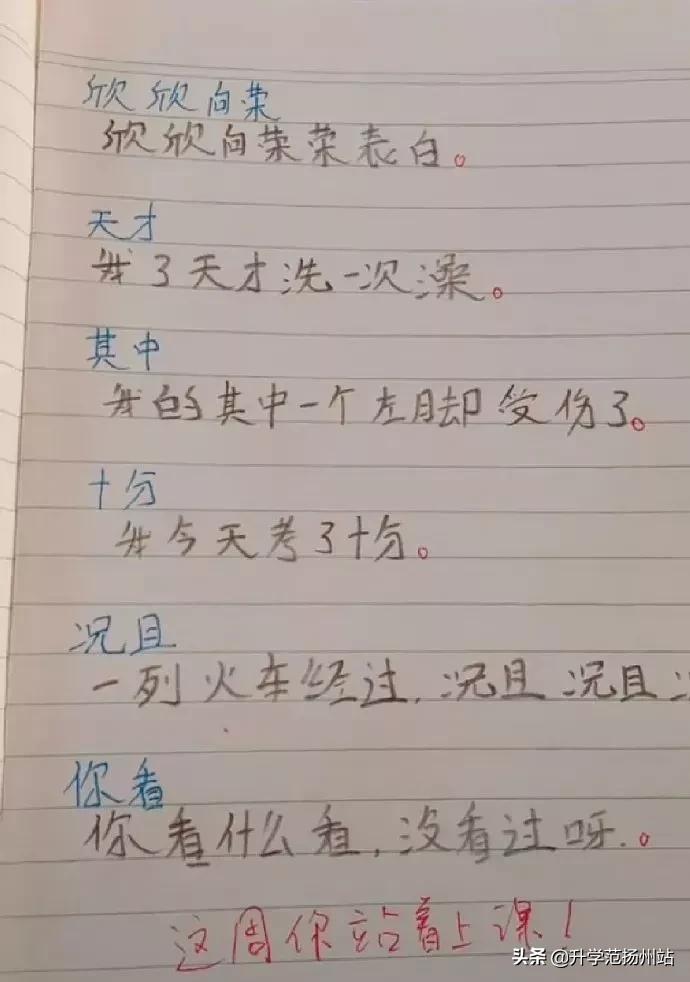 欣欣向荣
欣欣向荣荣表白。
天才
我3天才洗一次澡。
其中
我的其中一个左脚受伤了。
十分
我今天考了十分。
况且
一列火车经过,况且况且
你看
你看什么看,没看过呀。
这周你站着上课!
头条 @升学范扬州站